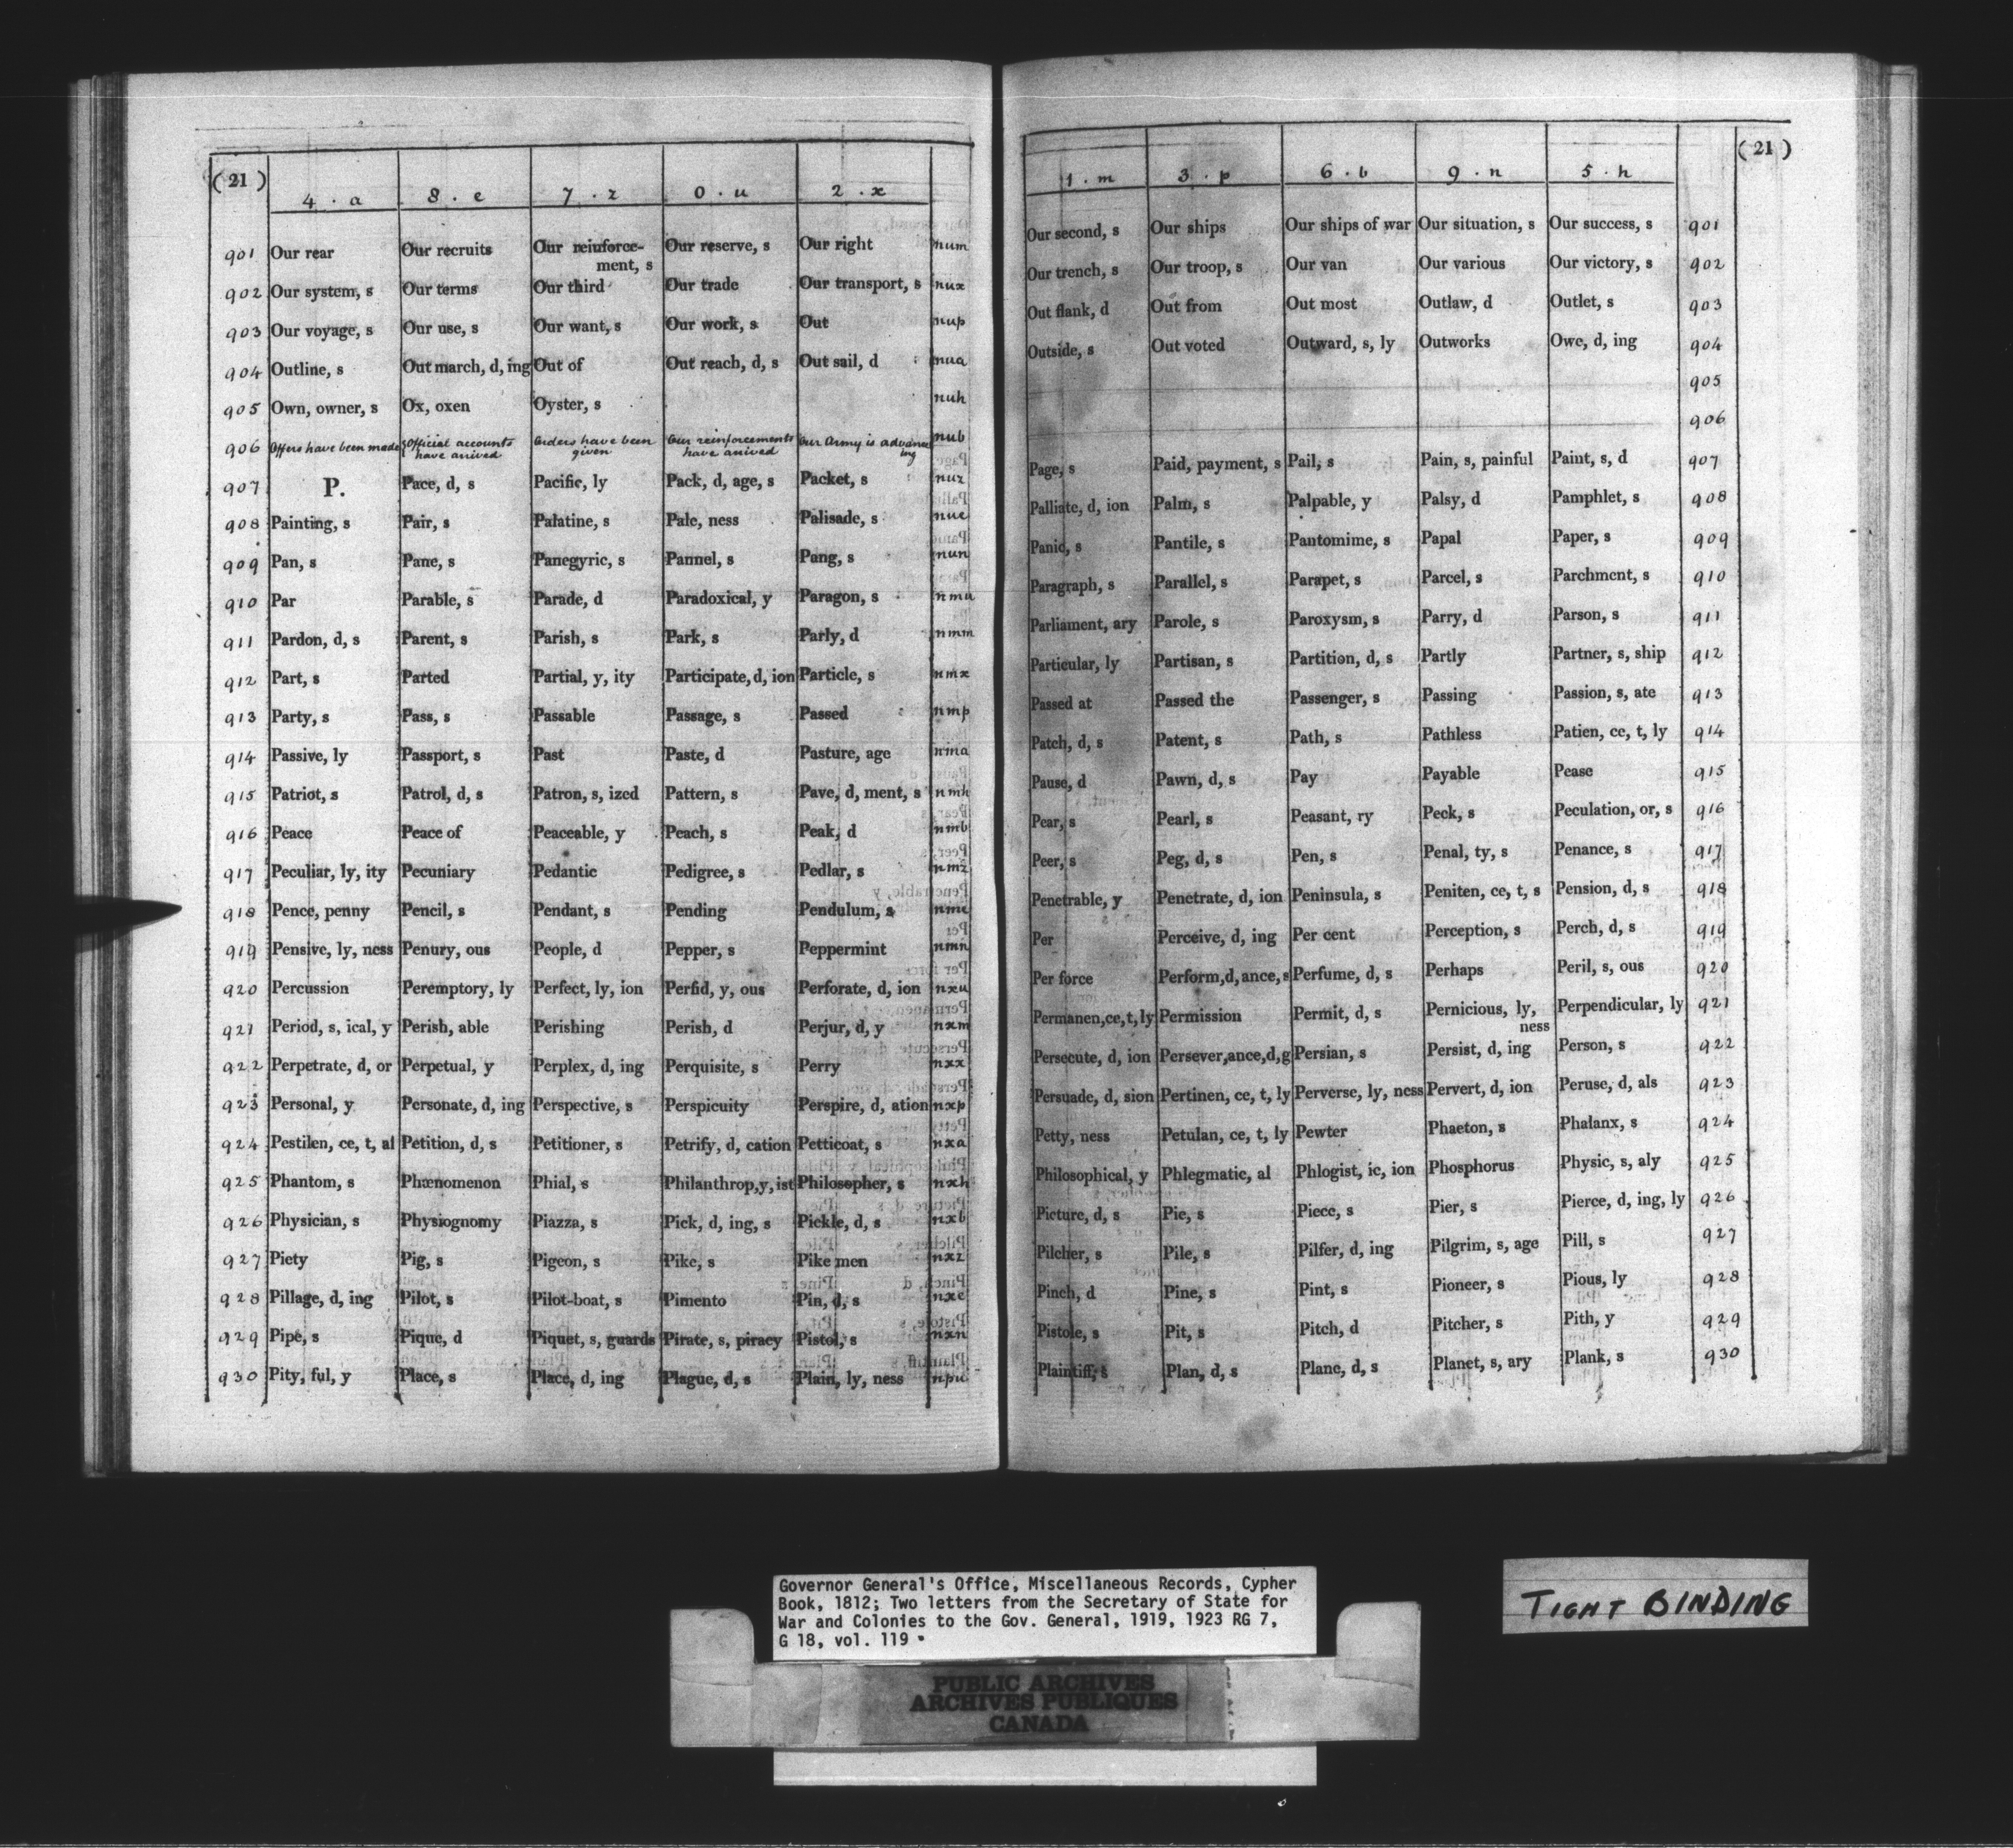 (21)
4 . a 8 . e 7 . z 0 . u 2 . x
901 Our rear Our recruits Our reinforce-ment, s Our reserve, s Our right num
902 Our system, s Our terms Our third Our trade Our transport, s nux
903 Our voyage, s Our use, s Our want, s Our work, s Out nup
904 Outline, s Out march, d, ing Out of Out reach, d, s Out sail, d nua
905 Own, owner, s Ox, oxen Oyster, s nuh
906 Offers have been made Official accounts have arrived Orders have been given Our reinforcements have arrived Our Army is advancing nub
907 P. Pace, d, s Pacific, ly Pack, d, age, s Packet, s nuz
908 Painting, s Pair, s Palatine, s Pale, ness Palisade, s nue
909 Pan, s Pane, s Panegyric, s Pannel, s Pang, s nun
910 Par Parable, s Parade, d Paradoxical, y Paragon, s nmu
911 Pardon, d, s Parent, s Parish, s Park, s Parly, d nmm
912 Part, s Parted Partial, y, ity Participate, d, ion Particle, s nmx
913 Party, s Pass, s Passable Passage, s Passed nmp
914 Passive, ly Passport, s Past Paste, d Pasture, age nma
915 Patriot, s Patrol, d, s Patron, s, ized Pattern, s Pave, d, ment, s nmh
916 Peace Peace of Peaceable, y Peach, s Peak, d nmb
917 Peculiar, ly, ity Pecuniary Pedantic Pedigree, s Pedlar, s nmz
918 Pence, penny Pencil, s Pendant, s Pending Pendulum, s nme
919 Pensive, ly, ness Penury, ous People, d Pepper, s Peppermint nmn
920 Percussion Peremptory, ly Perfect, ly, ion Perfid, y, ous Perforate, d, ion nxu
921 Period, s, ical, y Perish, able Perishing Perish, d Perjur, d, y nxm
922 Perpetrate, d, or Perpetual, y Perplex, d, ing Perquisite, s Perry nxx
923 Personal, y Personate, d, ing Perspective, s Perspicuity Perspire, d, ation nxp
924 Pestilen, ce, t, al Petition, d, s Petitioner, s Petrify, d, cation Petticoat, s nxa
925 Phantom, s Phænomenon Phial, s Philanthrop,y, ist Philosopher, s nxh
926 Physician, s Physiognomy Piazza, s Pick, d, ing, s Pickle, d, s nxb
927 Piety Pig, s Pigeon, s Pike, s Pike men nxz
928 Pillage, d, ing Pilot, s Pilot-boat, s Pimento Pin, d, s nxe
929 Pipe, s Pique, d Piquet, s, guards Pirate, s, piracy Pistol, s nxn
930 Pity, ful, y Place, s Place, d, ing Plague, d, s Plain, ly, ness npu
(21)
1 . m 3 . p 6 . b 9 . n 5 . h
Our second, s Our ships Our ships of war Our situation, s Our success, s 901
Our trench, s Our troop, s Our van Our various Our victory, s 902
Out flank, d Out from Out most Outlaw, d Outlet, s 903
Outside, s Out voted Outward, s, ly Outworks Owe, d, ing 904
905
906
Page, s Paid, payment, s Pail, s Pain, s, painful Paint, s, d 907
Palliate, d, ion Palm, s Palpable, y Palsy, d Pamphlet, s 908
Panic, s Pantile, s Pantomime, s Papal Paper, s 909
Paragraph, s Parallel, s Parapet, s Parcel, s Parchment, s 910
Parliament, ary Parole, s Paroxysm, s Parry, d Parson, s 911
Particular, ly Partisan, s Partition, d, s Partly Partner, s, ship 912
Passed at Passed the Passenger, s Passing Passion, s, ate 913
Patch, d, s Patent, s Path, s Pathless Patien, ce, t, ly 914
Pause, d Pawn, d, s Pay Payable Pease 915
Pear, s Pearl, s Peasant, ry Peck, s Peculation, or, s 916
Peer, s Peg, d, s Pen, s Penal, ty, s Penance, s 917
Penetrable, y Penetrate, d, ion Peninsula, s Peniten, ce, t, s Pension, d, s 918
Per Perceive, d, ing Per cent Perception, s Perch, d, s 919
Per force Perform,d, ance, s Perfume, d, s Perhaps Peril, s, ous 920
Permanen,ce,t, ly Permission Permit, d, s Pernicious, ly, ness Perpendicular, ly 921
Persecute, d, ion Persever,ance,d,g Persian, s Persist, d, ing Person, s 922
Persuade, d, sion Pertinen, ce, t, ly Perverse, ly, ness Pervert, d, ion Peruse, d, als 923
Petty, ness Petulan, ce, t, ly Pewter Phaeton, s Phalanx, s 924
Philosophical, y Phlegmatic, al Phlogist, ic, ion Phosphorus Physic, s, aly 925
Picture, d, s Pie, s Piece, s Pier, s Pierce, d, ing, ly 926
Pilcher, s Pile, s Pilfer, d, ing Pilgrim, s, age Pill, s 927
Pinch, d Pine, s Pint, s Pioneer, s Pious, ly 928
Pistole, s Pit, s Pitch, d Pitcher, s Pith, y 929
Plaintiff, s Plan, d, s Plane, d, s Planet, s, ary Plank, s 930
Governor General's Office, Miscellaneous Records, Cypher
Book, 1812; Two letters from the Secretary of State for
War and Colonies to the Gov. General, 1919, 1923 RG 7,
G 18, vol. 119
TIGHT BINDING
PUBLIC ARCHIVES
ARCHIVES PUBLIQUES
CANADA